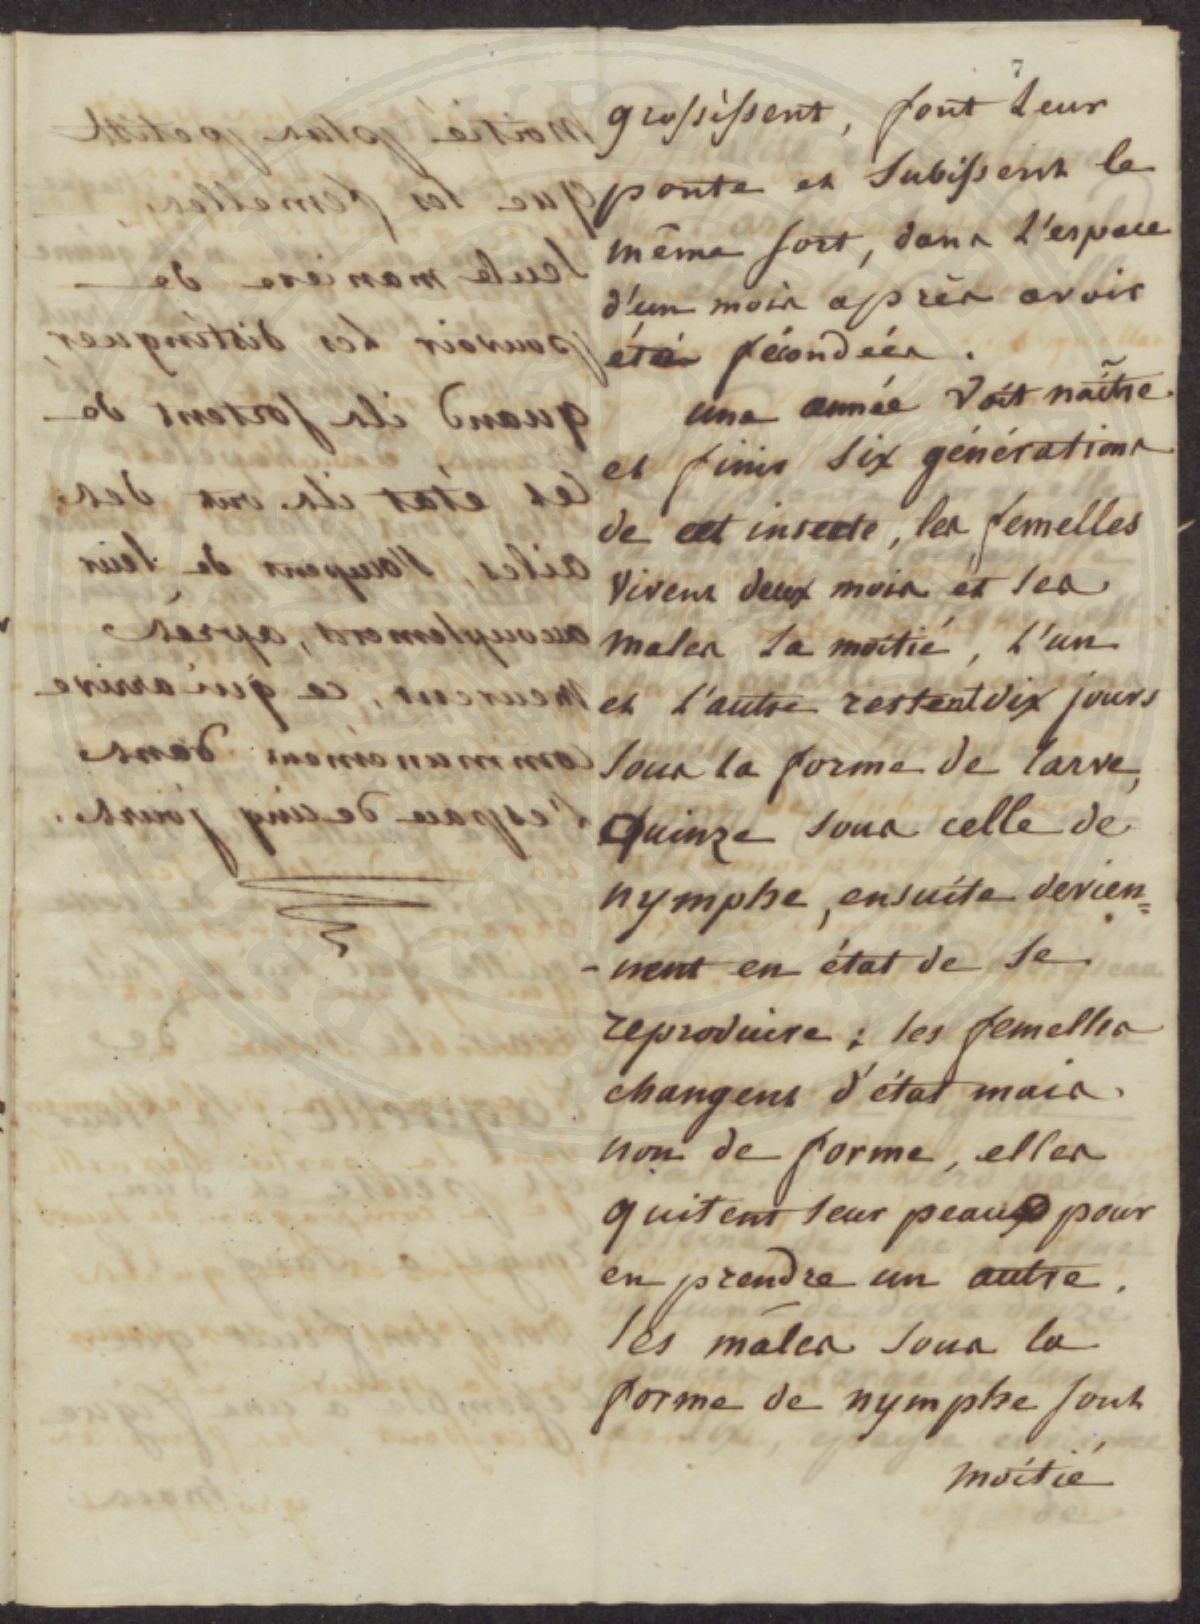 7
grossissent, font leur
ponte et subissent le
même sort, dans l'espace
d'un mois après avoir
été fécondées.
une année voit naître
et finir six générations
de cet insecte, les femelles
vivent deux mois et les
males la moitié, l'un
et l'autre restent dix jours
sous la forme de larve,
Quinze sous celle de
nymphe, ensuite devien=
-nent en état de se
reproduire; les femelles
changent d'état mais
non de forme, elles
quitent leur peau pour
en prendre un autre.
les mâles sous la
forme de nymphe sont
moitié